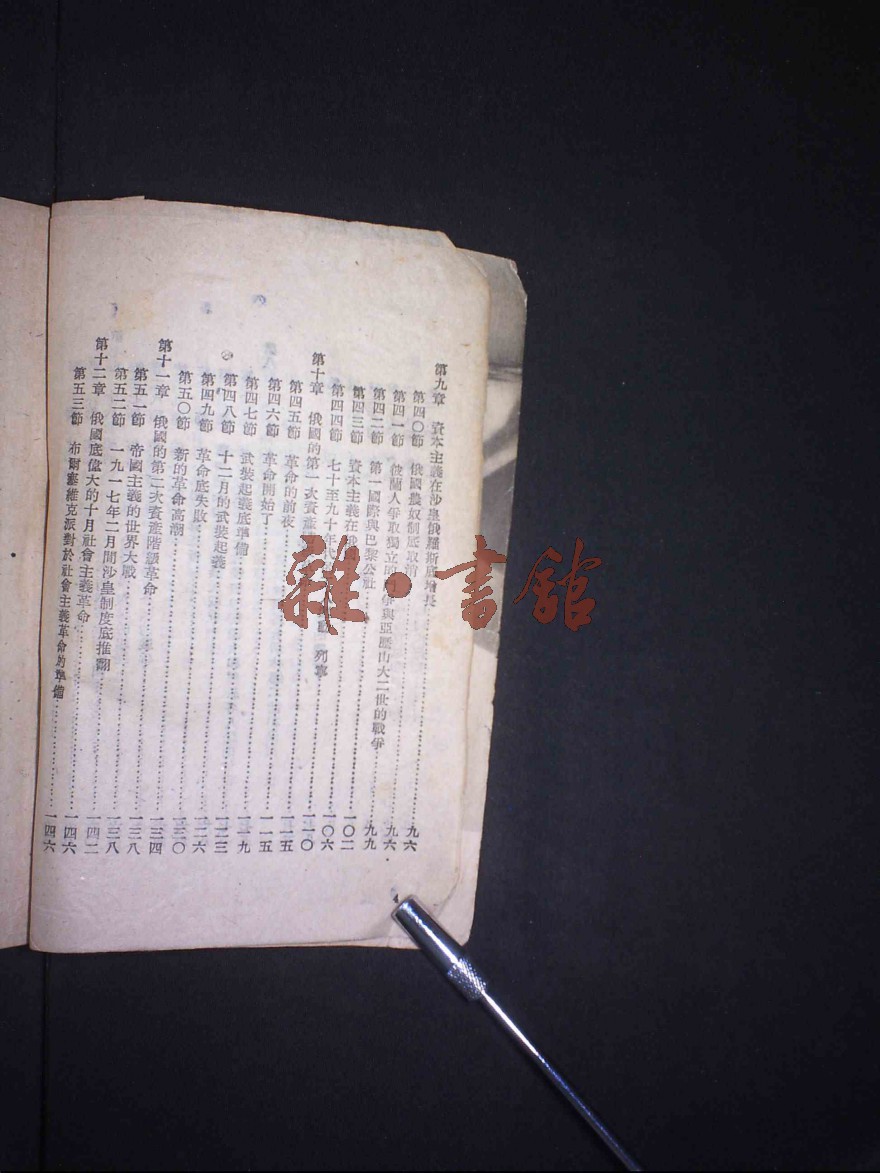 第九章 資本主義在沙皇俄羅斯底增長……九六
第四〇節 俄國農奴制底取消……九六
第四一節 波蘭人爭取獨立的爭與亞歷山大二世的戰爭……九九
第四二節 第一國際與巴黎公社……一〇二
第四三節 資本主義在俄……一〇六
第四四節 七十至九十年代 列寧……一一〇
第十章 俄國的第一次資產……一一五
第四五節 革命的前夜……一一五
第四六節 革命開始了……一一九
第四七節 武裝起義底準備……一二三
第四八節 十二月的武裝起義……一二六
第四九節 革命底失敗……一三〇
第五〇節 新的革命高潮……一三四
第十一章 俄國的第二次資產階級革命……一三八
第五一節 帝國主義的世界大戰……一三八
第五二節 一九一七年二月間沙皇制度底推翻……一四二
第十二章 俄國底偉大的十月社會主義革命……一四六
第五三節 布爾塞維克派對於社會主義革命的準備……一四六
雜·書館